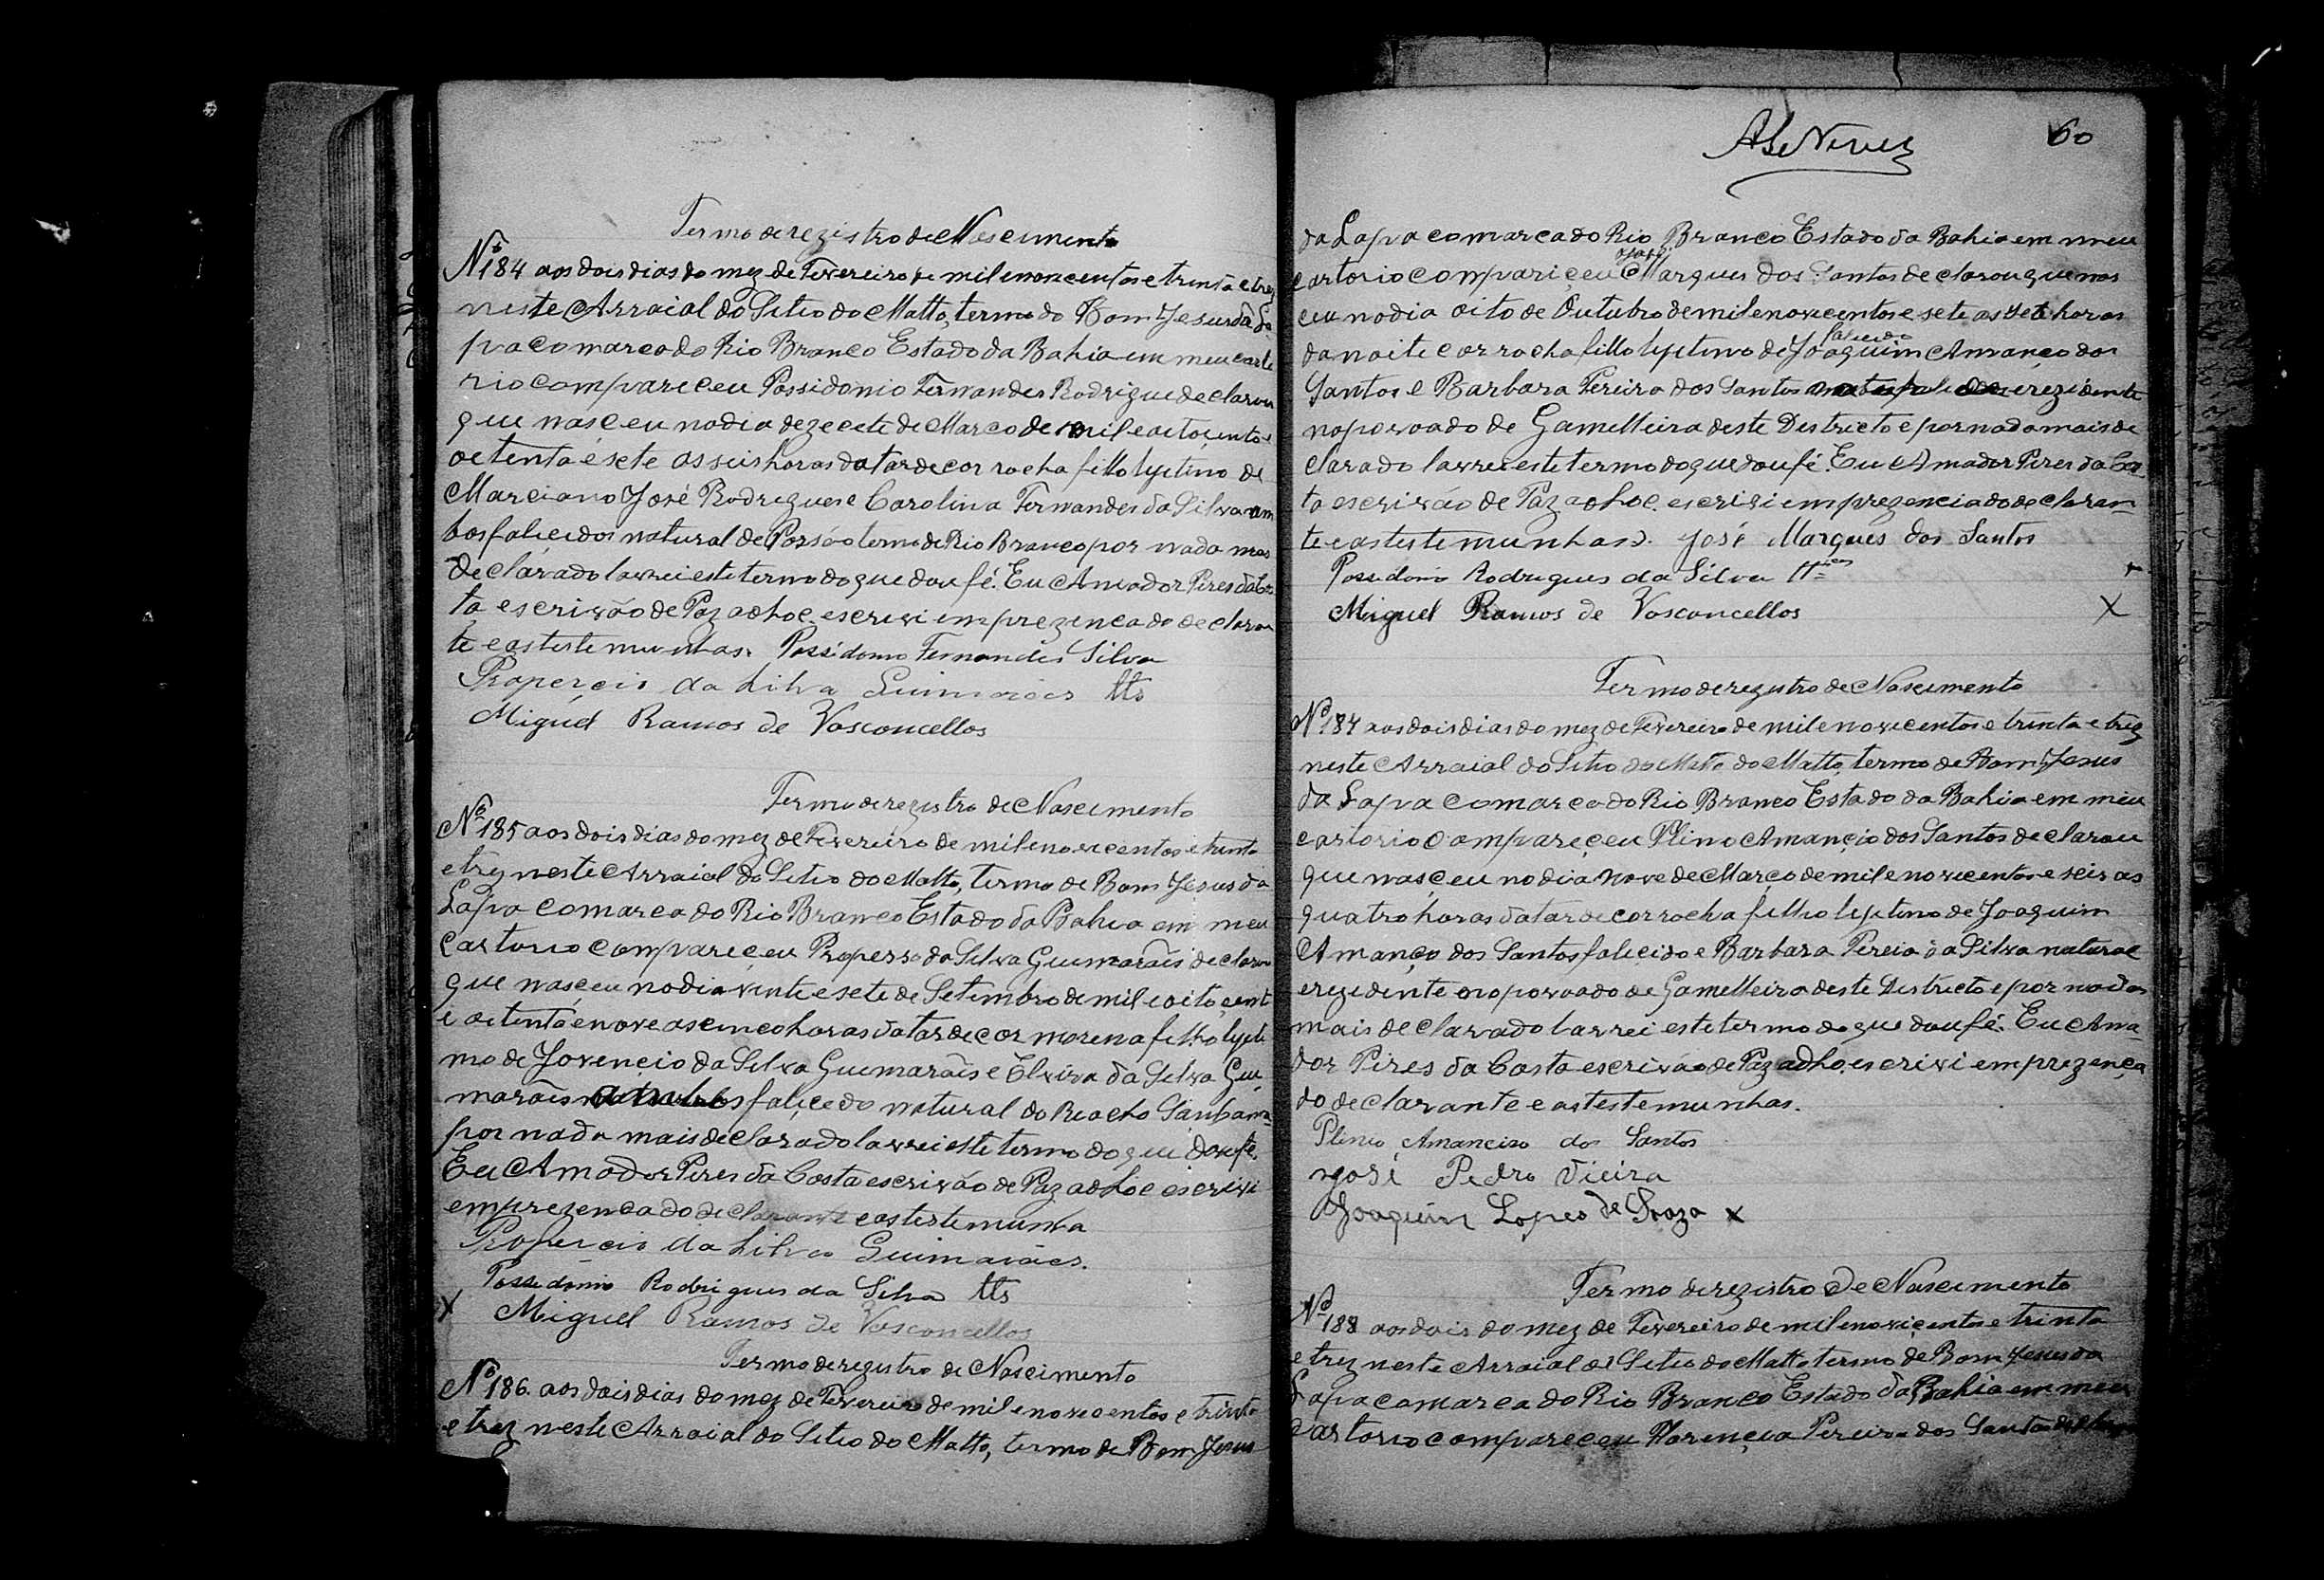 Termo de registro de Nascimento
Nº 184 aos dois dias do mez de Fevereiro de mil e novecentos e trinta e trez
neste Arraial do Sitio do Matto, termo do Bom Jesus da La
pa comarca do Rio Branco Estado da Bahia em meu carto
rio compareceu Possidonio Fernandes Rodrigue declarou
que nasceu no dia dezecete de Marco de mil e oitocentos e
oetenta e sete as seis horas da tarde cor rocha fillo lejetimo de
Marciano José Rodrigues e Carolina Fernandes da Silva am
bos falicidos natural de termo de Rio Branco por nada mas
declarado lavrei este termo do que dou fé. Eu Amador Pires da Cos
ta escrivão de Paz adhoc. escrevi em prezenca do declaran
te e as testemunhas. Possidonio Fernandes Silva
Propercio da Silva Guimarães tts
Miguel Ramos de Vasconcellos
Termo de registro de Nascimento
Nº 185 aos dois dias do mez de Fevereiro de mil e novecentos e trinta
e trez neste Arraial do Sitio do Matto, termo de Bom Jesus da
Lapa comarca do Rio Branco Estado da Bahia em meu
cartorio compariçeu Properso da Silva Guimarãis declarou
que nasceu no dia vinte e sete de Setembro de mil e oito cent
e oetenta e nove as cinco horas da tarde cor morena filho lejeti
mo de Jovencio da Silva Guimarãis e Elvira da Silva Gui
marãis falicedo natural do Riacho
por nada mais declarado lavrei este termo do que dou fé.
Eu Amador Pires da Costa escrivão de Paz adhoc escrivi
em prezenca do declarante e as testemunha
Propercio da Silva Guimarães.
Possidonio Rodrigues da Silva tts
X Miguel Ramos de Vasconcellos
Termo de registro de Nascimento
Nº 186. aos dois dias do mez de Fevereiro de mil e novecentos e trinta
e trez neste Arraial do Sitio do Matto, termo de Bom Jesus
60
da Lapa comarca do Rio Branco Estado da Bahia em meu
José
cartorio compariçeu Marques dos Santos declarou que nas
ceu no dia oito de Outubro de mil e novecentos e sete as sete horas
falicido
da noite cor rocha fillo lejetimo de Joaquim Amanço dos
Santos e Barbara Pereira dos Santos e rezidente
no povoado de Gamelleira deste Districto e por nada mais de
clarado lavrei este termo do que dou fé. Eu Amador Pires da Cos
ta escrivão de Paz adhoc. escrivi em prezencia do declaran
te e as testemunhas. José Marques dos Santos
Possidonio Rodrigues da Silva
Miguel Ramos de Vasconcellos X
Termo de registro de Nascimento
Nº 187 aos dois dias do mez de Fevereiro de mil e novecentos e trinta e trez
neste Arraial do Sitio do Matto do Matto, termo de Bom Jesus
da Lapa comarca do Rio Branco Estado da Bahia em meu
cartorio compareçeu Plino Amançio dos Santos declarou
que nasçeu no dia nove de Março de mil e novecentos e seis as
quatro horas da tarde cor rocha filho lejetimo de Joaquim
Amanço dos Santos faliçido e Barbara Pereia da Silva natural
e rezidente no povoado de Gamelleira deste Districto e por nada
mais declarado lavrei este termo do que dou fé. Eu Ama
dor Pires da Costa escrivão de Paz adhoc. escrivi em prezença
do declarante e as testemunhas.
Plinio Amancio dos Santos
José Pedro Vieira
Joaquim Lopes de Souza X
Termo de registro de Nascimento
Nº 188 aos dois do mez de Fevereiro de mil e noviçentos e trinta
e trez neste Arraial do Sitio do Matto termo de Bom Jesus da
Lapa comarca do Rio Branco Estado da Bahia em meu
cartorio compareceu Florençia Pereira dos Santos